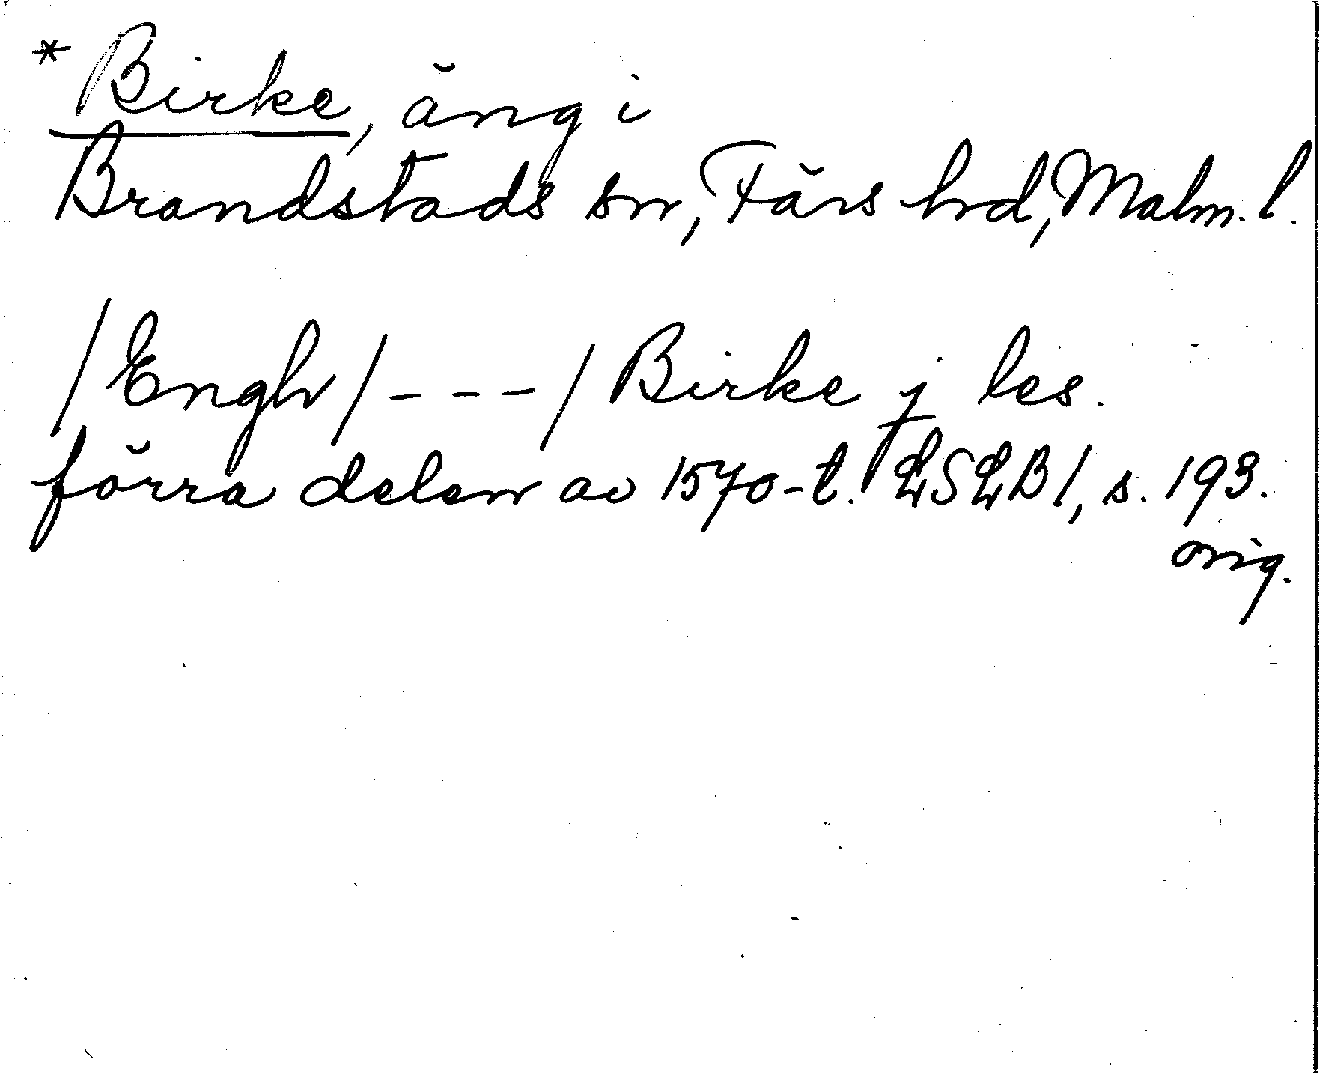 * Birke, äng i
Brandstads sn, Färs hrd, Malm. l.
/Engh/ - - - / Birke j les.
förra delen av 1570-t. LSLB 1, s. 193.
orig.